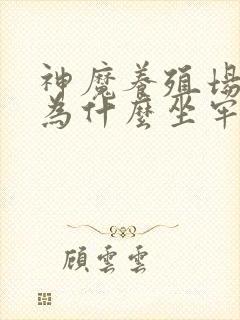 神魔養殖場
為什麼坐牢
顧雲雲